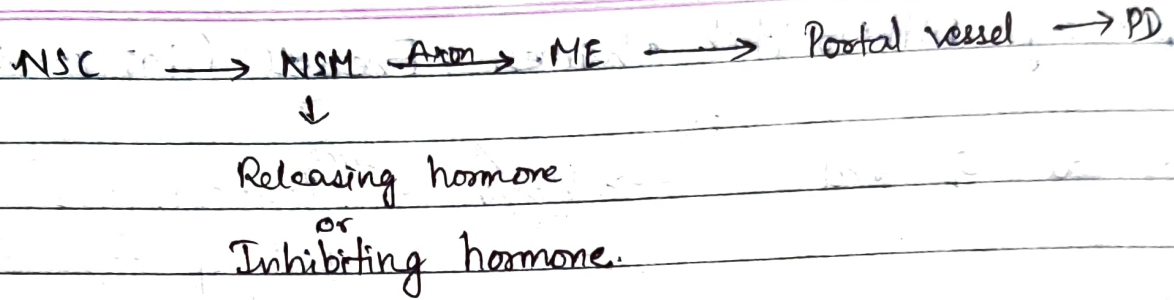 NSC → NSM Axon→ ME → Portal vessel → PD
↓
Releasing hormone
or
Inhibiting hormone.